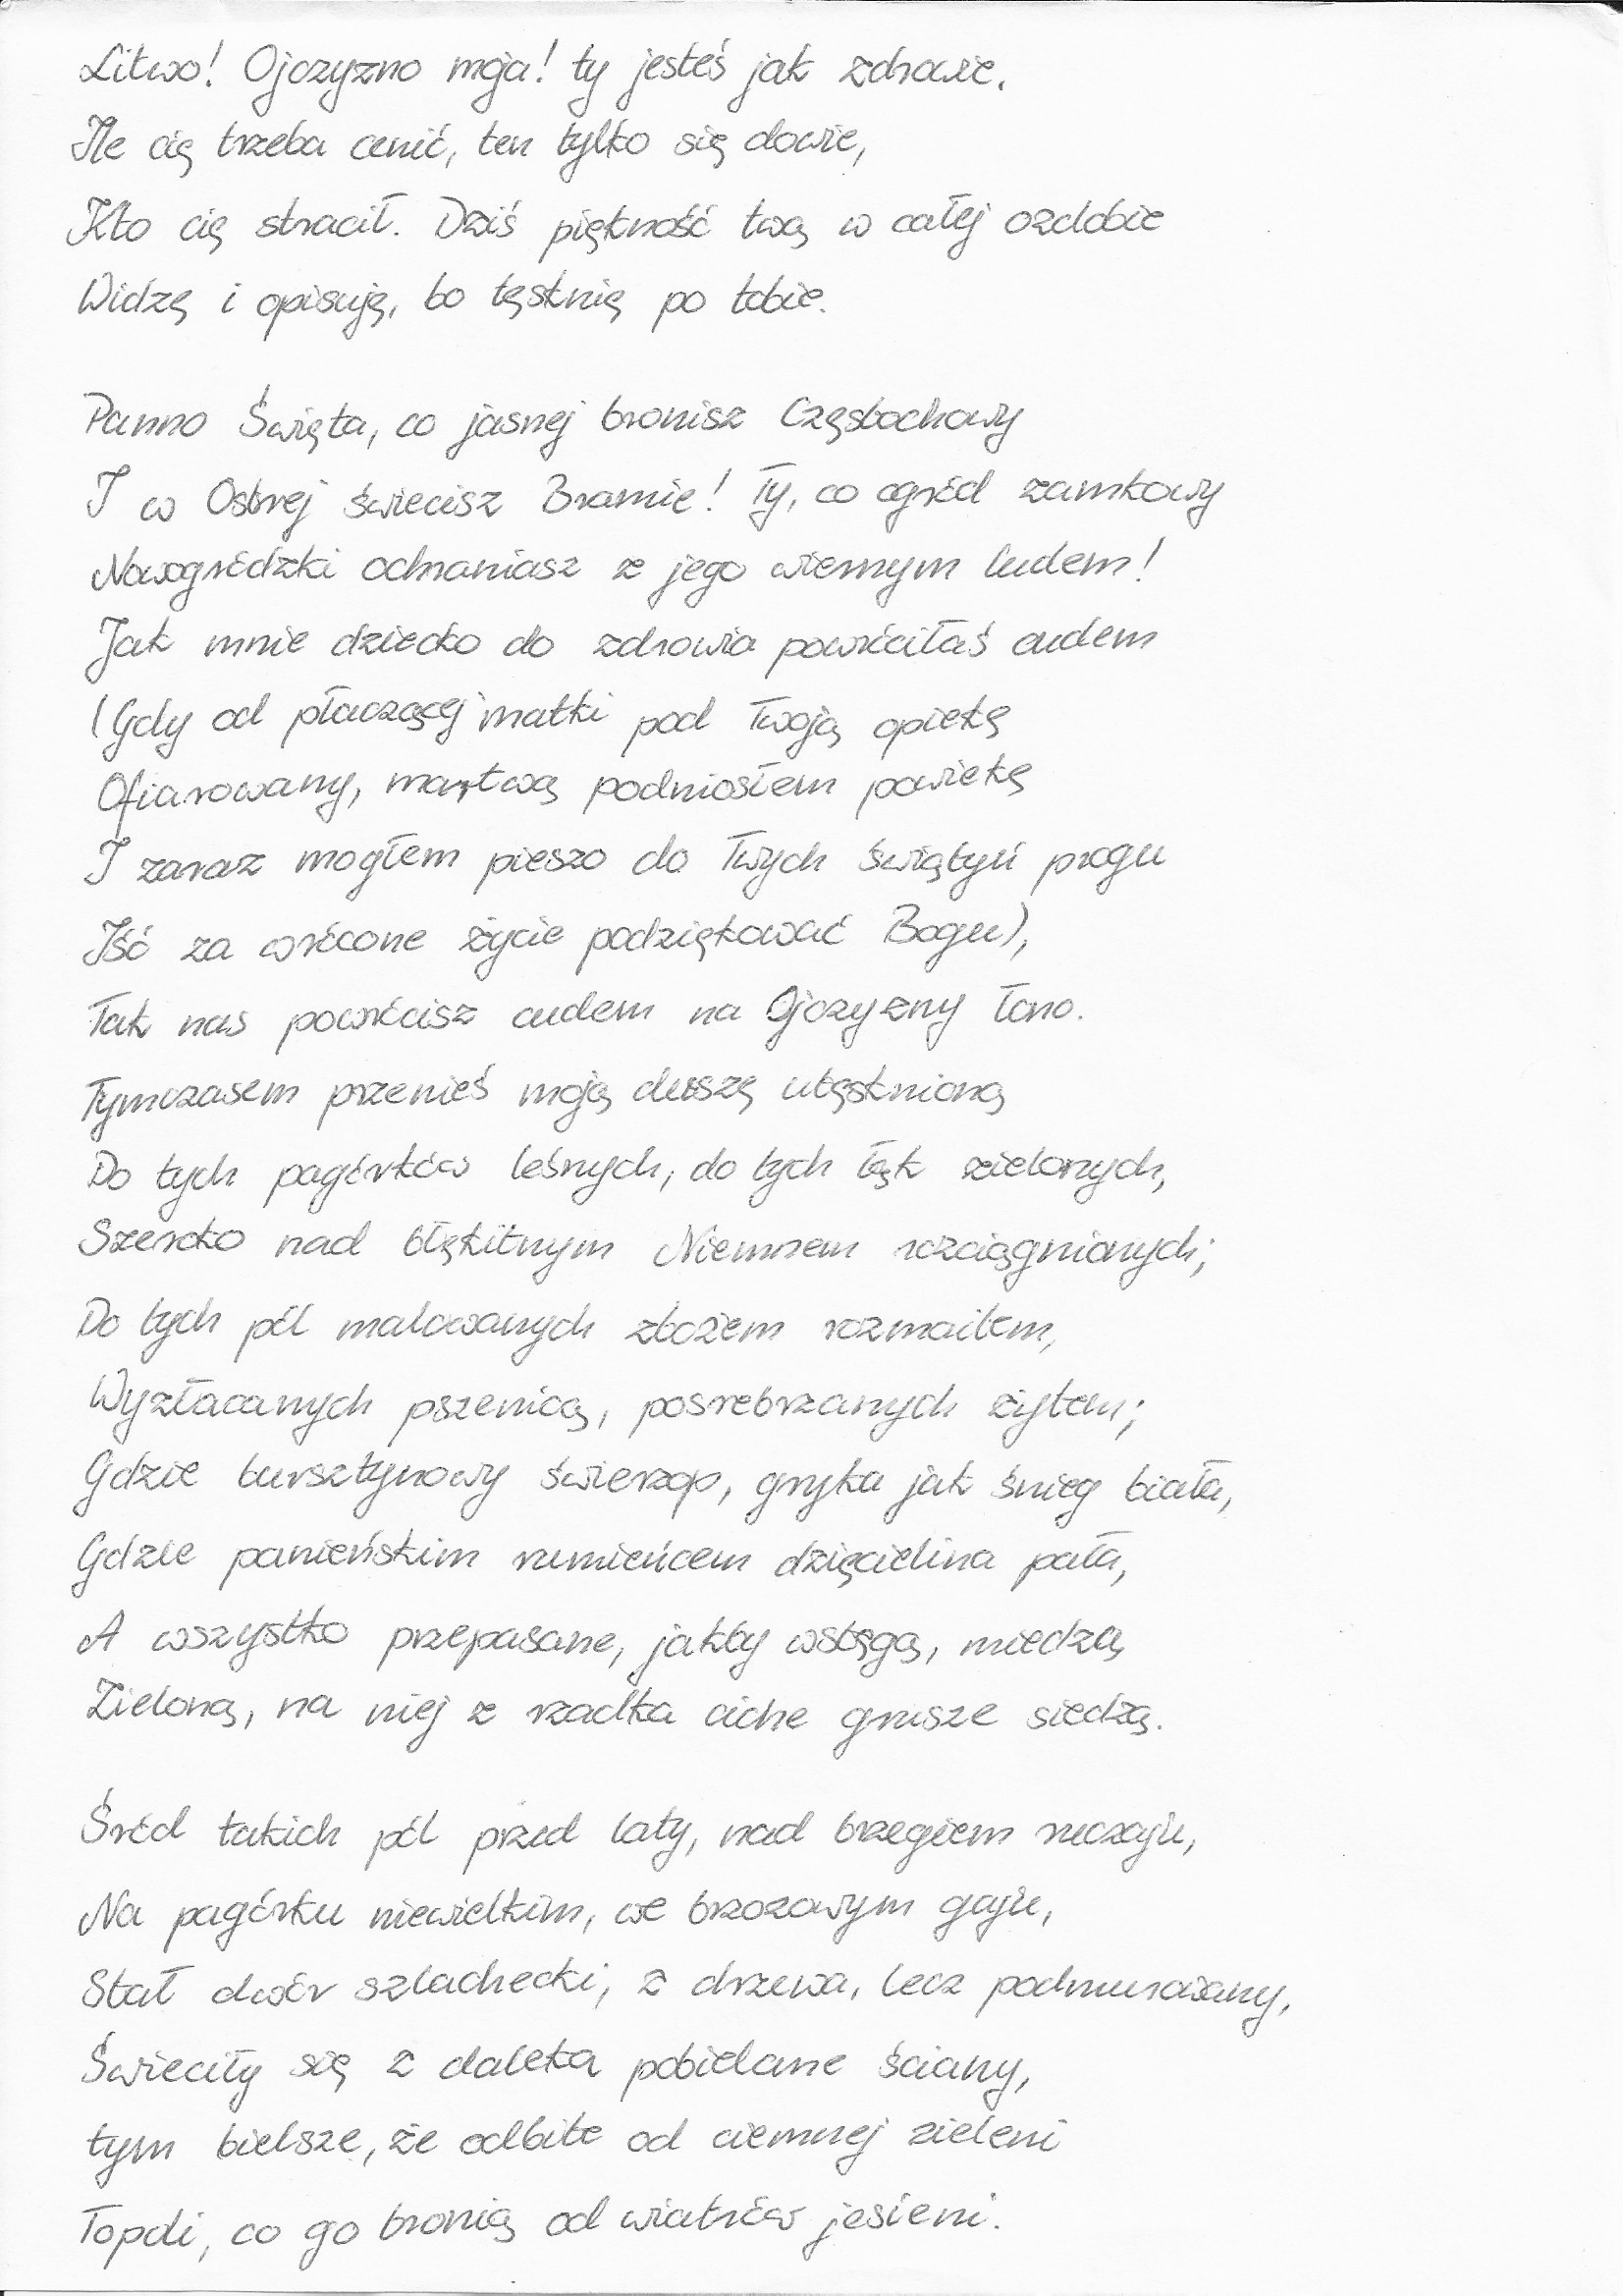 Litwo! Ojczyzno moja! ty jesteś jak zdrowie.
Ile cię trzeba cenić, ten tylko się dowie,
Kto cię stracił. Dziś piękność twą w całej ozdobie
Widzę i opisuję, bo tęsknię po tobie.
Panno Święta, co jasnej bronisz Częstochowy
I w Ostrej świecisz Bramie! Ty, co ogród zamkowy
Nowogródzki ochraniasz z jego wiernym ludem!
Jak mnie dziecko do zdrowia powróciłaś cudem
(Gdy od płaczącej matki pod Twoją opiekę
Ofiarowany, martwą podniosłem powiekę
I zaraz mogłem pieszo do Twych świątyń progu
Iść za wrócone życie podziękować Bogu),
Tak nas powrócisz cudem na Ojczyzny łono.
Tymczasem przenieś moją duszę utęsknioną
Do tych pagórków leśnych, do tych łąk zielonych,
Szeroko nad błękitnym Niemnem rozciągnionych;
Do tych pól malowanych zbożem rozmaitem,
Wyzłacanych pszenicą, posrebrzanych żytem;
Gdzie bursztynowy świerzop, gryka jak śnieg biała,
Gdzie panieńskim rumieńcem dzięcielina pała,
A wszystko przepasane, jakby wstęgą, miedzą
Zieloną, na niej z rzadka ciche grusze siedzą.
Śród takich pól przed laty, nad brzegiem ruczaju,
Na pagórku niewielkim, we brzozowym gaju,
Stał dwór szlachecki, z drzewa, lecz podmurowany,
Świeciły się z daleka pobielane ściany,
tym bielsze, że odbite od ciemnej zieleni
Topoli, co go bronią od wiatrów jesieni.